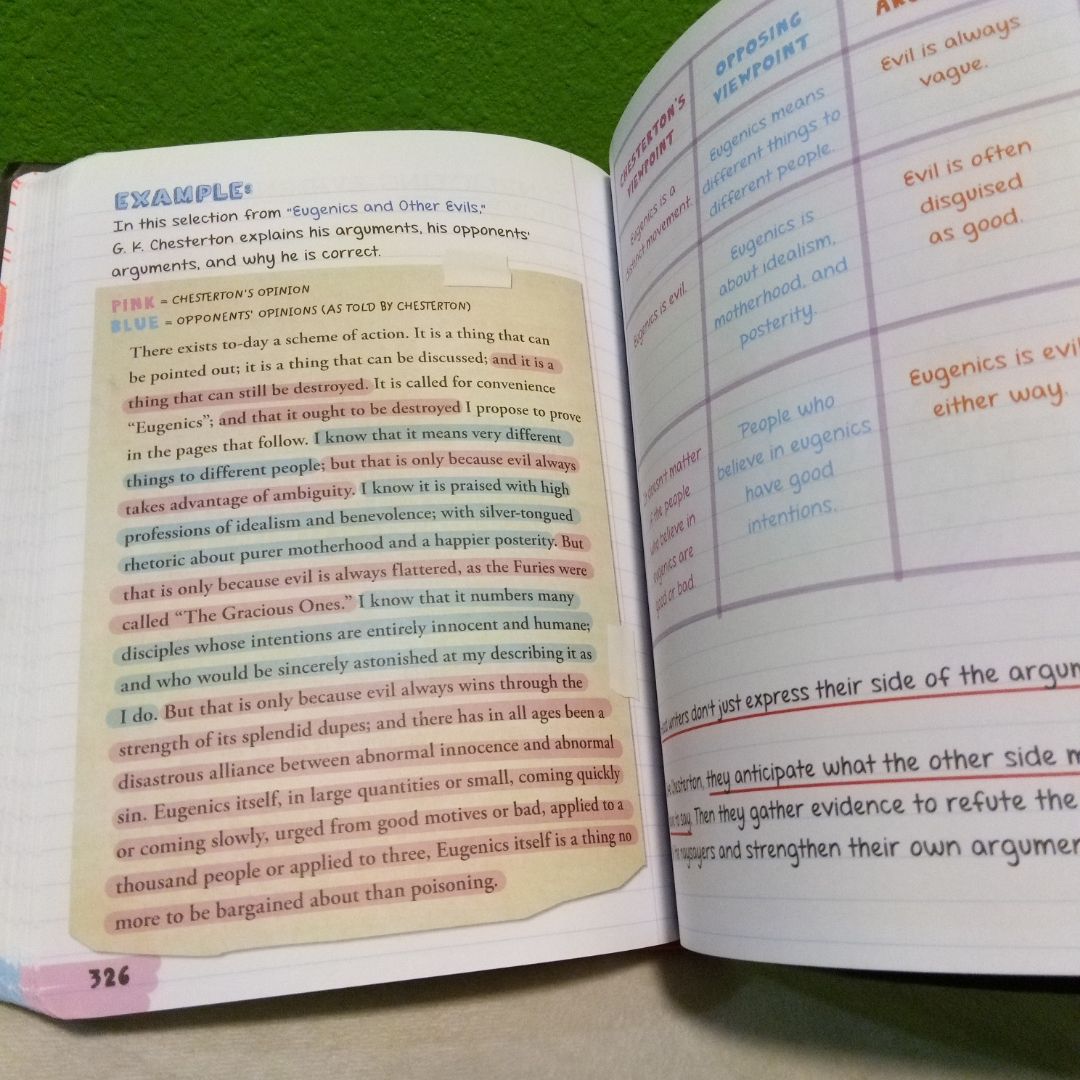 EXAMPLE:
In this selection from "Eugenics and Other Evils,"
G. K. Chesterton explains his arguments, his opponents'
arguments, and why he is correct.
PINK = CHESTERTON'S OPINION
BLUE = OPPONENTS' OPINIONS (AS TOLD BY CHESTERTON)
There exists to-day a scheme of action. It is a thing that can
be pointed out; it is a thing that can be discussed; and it is a
thing that can still be destroyed. It is called for convenience
“Eugenics”; and that it ought to be destroyed I propose to prove
in the pages that follow. I know that it means very different
things to different people; but that is only because evil always
takes advantage of ambiguity. I know it is praised with high
professions of idealism and benevolence; with silver-tongued
rhetoric about purer motherhood and a happier posterity. But
that is only because evil is always flattered, as the Furies were
called “The Gracious Ones.” I know that it numbers many
disciples whose intentions are entirely innocent and humane;
and who would be sincerely astonished at my describing it as
I do. But that is only because evil always wins through the
strength of its splendid dupes; and there has in all ages been a
disastrous alliance between abnormal innocence and abnormal
sin. Eugenics itself, in large quantities or small, coming quickly
or coming slowly, urged from good motives or bad, applied to a
thousand people or applied to three, Eugenics itself is a thing no
more to be bargained about than poisoning.
326
CHESTERTON'S
VIEWPOINT
OPPOSING
VIEWPOINT
Eugenics is a
distinct movement.
Eugenics means
different things to
different people.
Evil is always
vague.
Eugenics is evil.
Eugenics is
about idealism,
motherhood, and
posterity.
Evil is often
disguised
as good.
doesn't matter
if the people
who believe in
eugenics are
good or bad.
People who
believe in eugenics
have good
intentions.
Eugenics is evil
either way.
writers don't just express their side of the
Chesterton, they anticipate what the other side
to say. Then they gather evidence to refute the
naysayers and strengthen their own